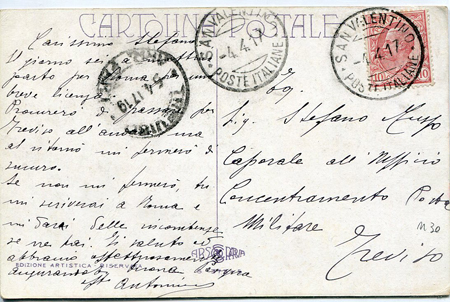 CARTOLINA POSTALE
SAN VALENTINO
-4.4.17
POSTE ITALIANE
SAN VALENTINO
-4.4.17
POSTE ITALIANE
Carissimo Stefano
Il giorno sei
parto per Roma in
breve licenza.
Procurerò passar per
Treviso all'andata ma
al ritorno mi fermerò di
sicuro.
Se non mi fermerò, tu
mi scriverai a Roma e
mi darai delle incombenze
se ne hai. Ti saluto ed
abbraccio affettuosamente
augurandoti buona Pasqua
Antonino
Sig. Stefano
Caporale all'Ufficio
Concentramento Posta
Militare
N. 30
Treviso
EDIZIONE ARTISTICA RISERVATA